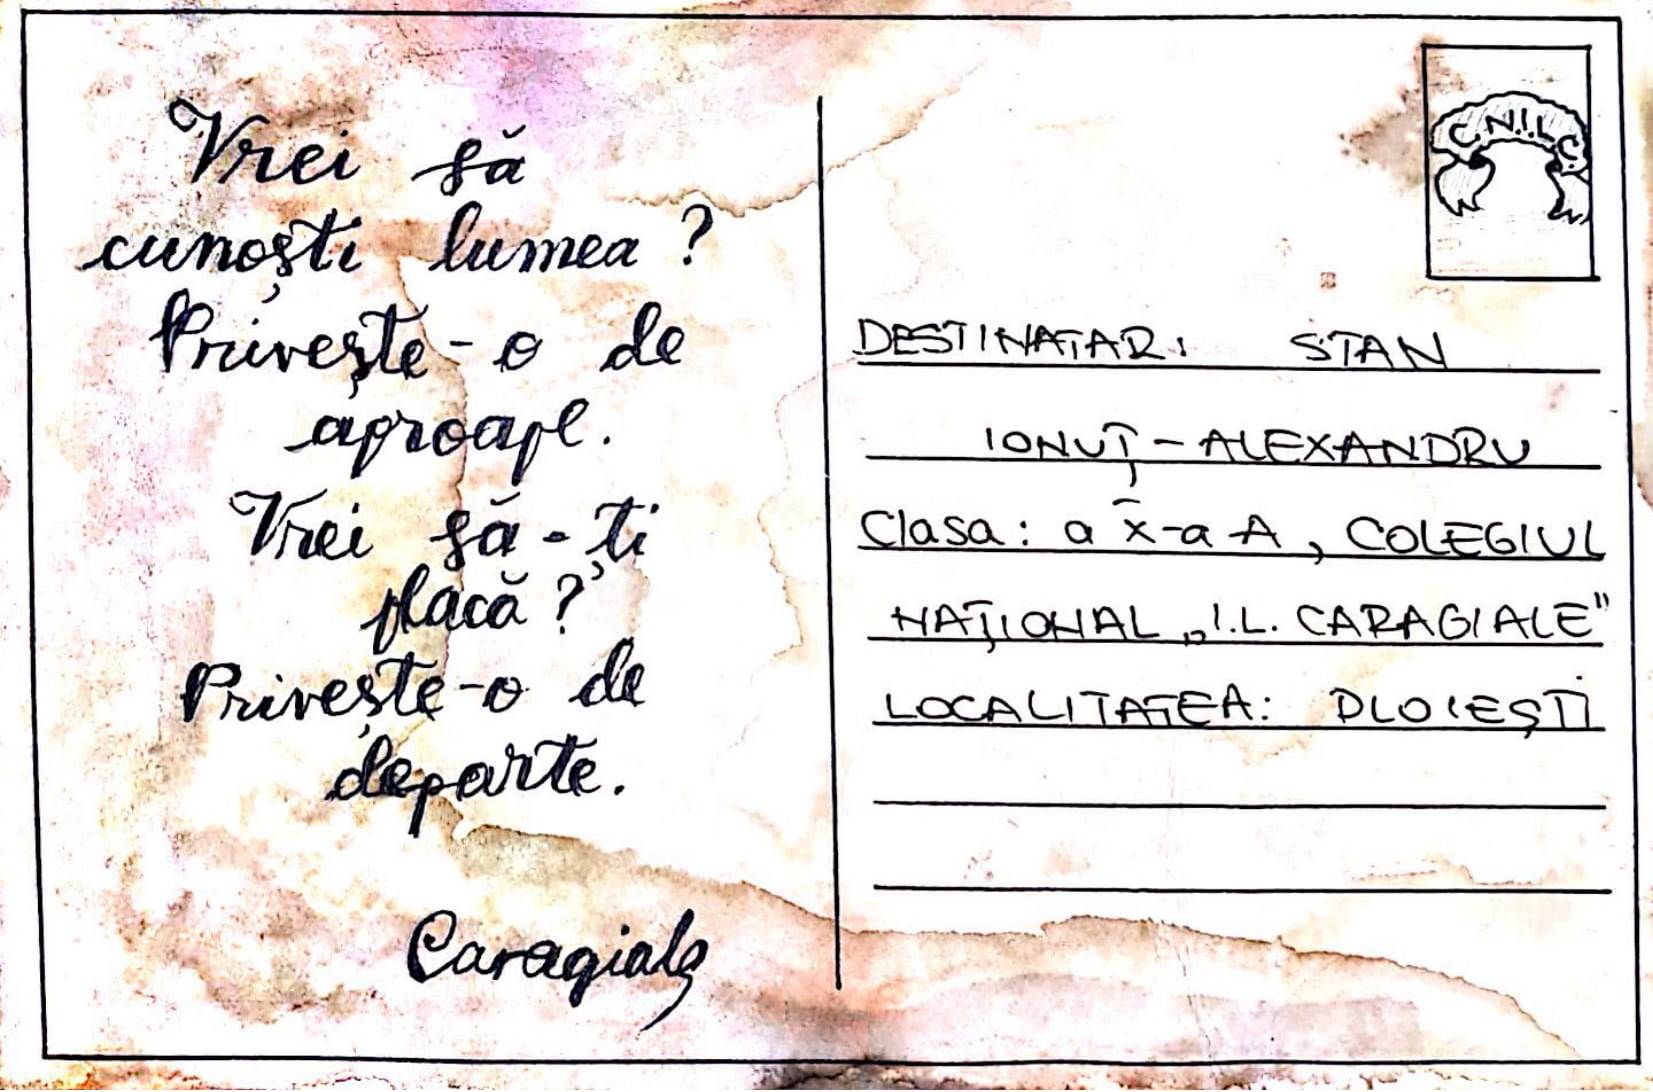 Vrei să
cunoști lumea ?
Privește-o de
aproape.
Vrei să-ți
placă ?
Privește-o de
departe.
Caragiale
C.N.I.L.C.
DESTINATAR: STAN
IONUȚ-ALEXANDRU
Clasa: a X-a A, COLEGIUL
NAȚIONAL „I.L. CARAGIALE”
LOCALITATEA: PLOIEȘTI